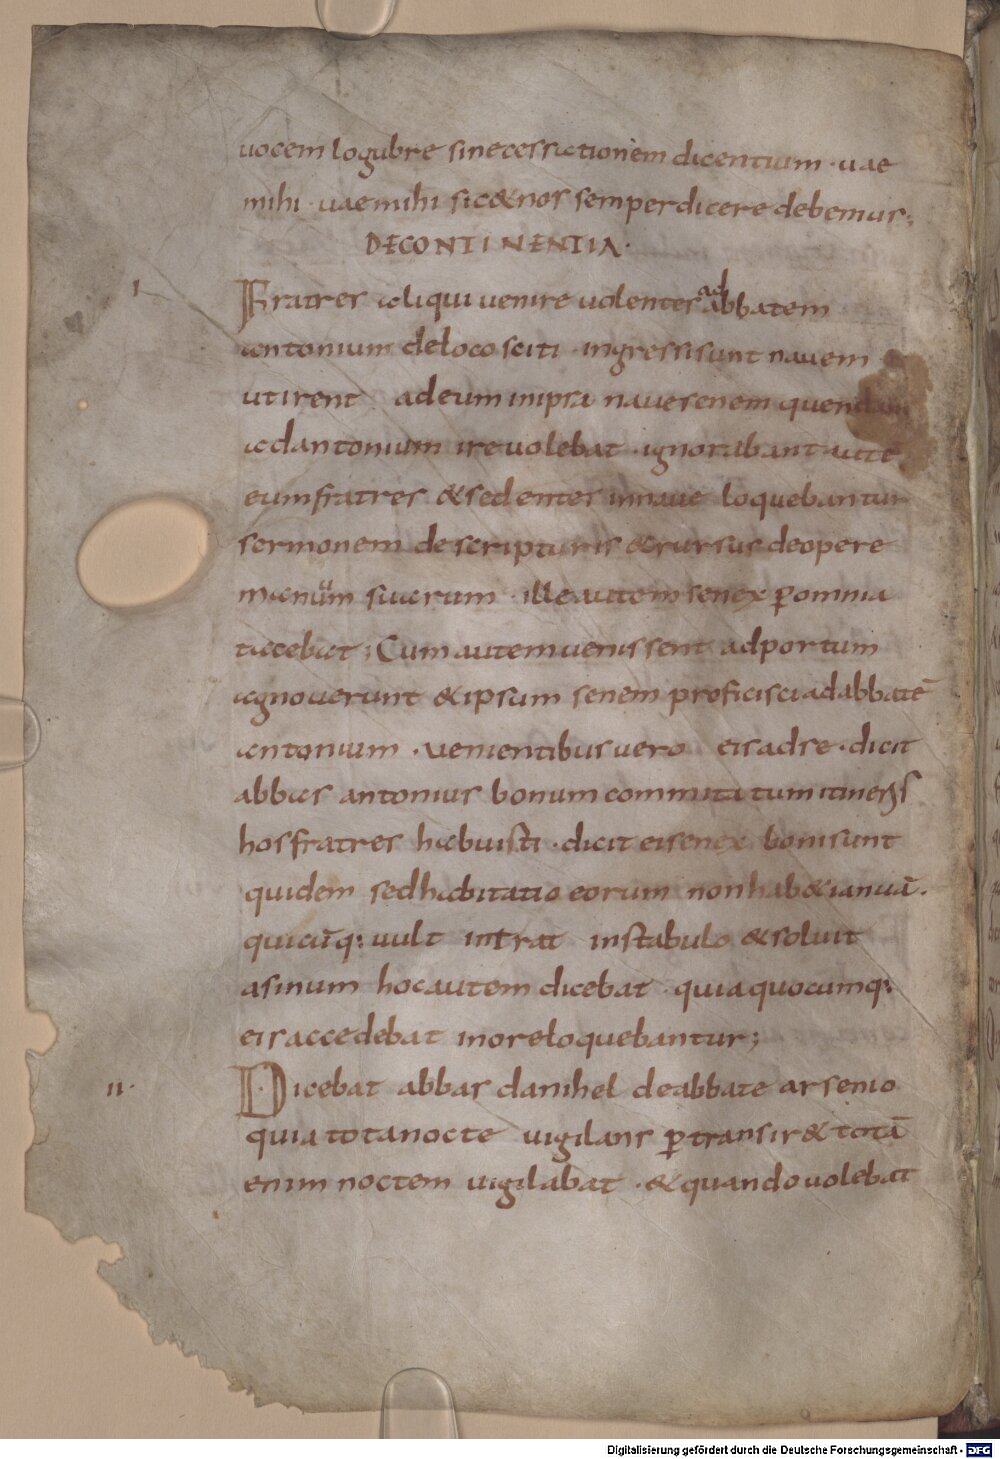 uocem logubre sine cessationem dicentium · uae
mihi · uae mihi sic & nos semper dicere debemus;
DE CONTINENTIA·
I Fratres aliqui uenire uolentes ad abbatem
antonium de loco sciti · ingressi sunt nauem
ut irent ad eum in ipsa naue senem quendam
ad antonium ire uolebat · ignorabant aute
eum fratres & sedentes in naue loquebantur
sermonem de scripturis & rursus de opere
manuum suarum · ille autem senex p omnia
tacebat; Cum autem uenissent ad portum
agnouerunt & ipsum senem proficisci ad abbatē
antonium · uenientibus uero eis ad se · dicit
abbas antonius bonum commitatum itineris
hos fratres habuisti · dicit ei senex boni sunt
quidem sed habitatio eorum non hab& ianuā·
quicūq: uult intrat in stabulo & soluit
asinum hoc autem dicebat · quia quocumq:
eis accedebat in ore loquebantur;
II· Dicebat abbas danihel de abbate arsenio
quia tota nocte uigilans p transir& totā
enim noctem uigilabat · & quando uolebat
Digitalisierung gefördert durch die Deutsche Forschungsgemeinschaft - DFG